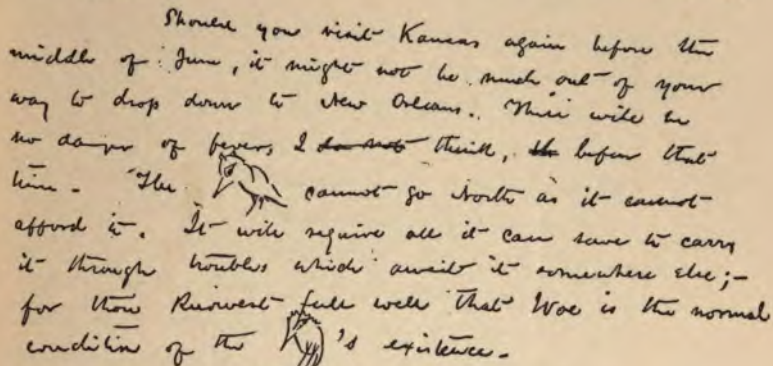 Should you visit Kansas again before the
middle of June, it might not be much out of your
way to drop down to New Orleans. There will be
no danger of fever, I do not think, before that
time. The cannot go North as it cannot
afford it. It will require all it can save to carry
it through troubles which await it somewhere else;—
for thou Knowest full well that Woe is the normal
condition of the 's existence.